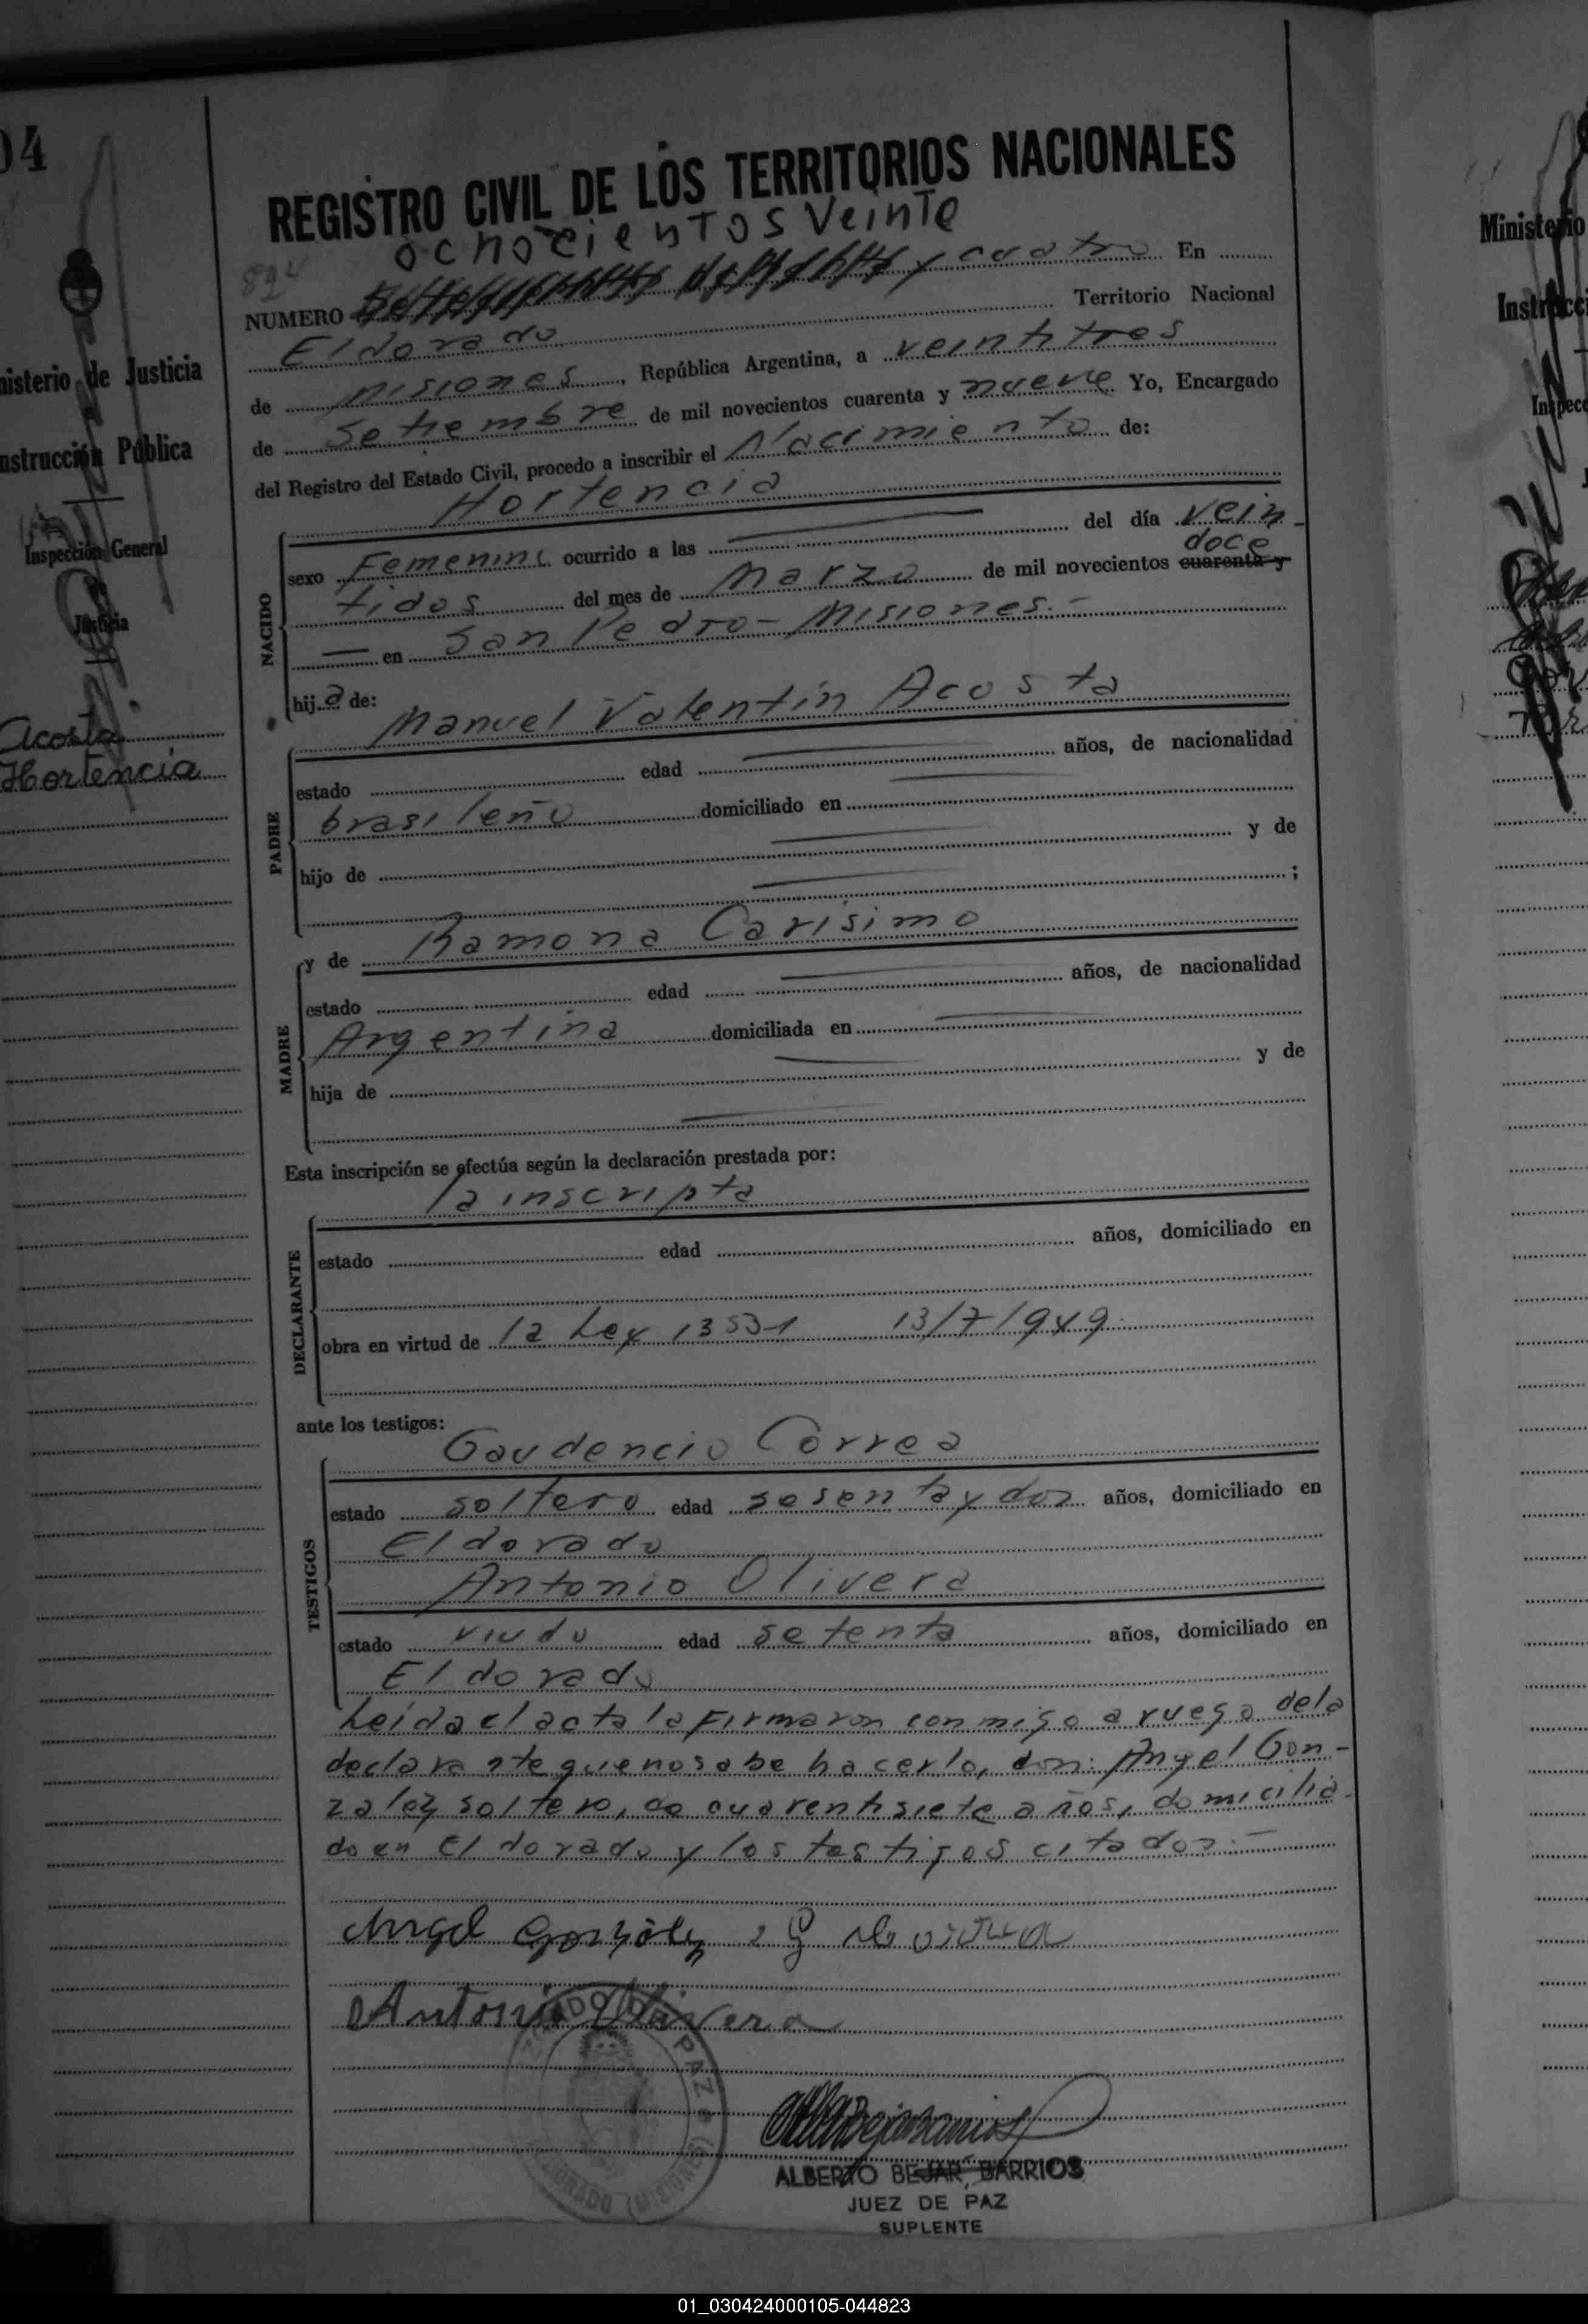 04
Ministerio de Justicia
Instrucción Pública
Inspección General
Justicia
Acosta
Hortencia
REGISTRO CIVIL DE LOS TERRITORIOS NACIONALES
ochocientos veinte
824
NUMERO y cuatro En
Eldorado Territorio Nacional
de Misiones, República Argentina, a veintitres
de Setiembre de mil novecientos cuarenta y nueve Yo, Encargado
del Registro del Estado Civil, procedo a inscribir el Nacimiento de:
Hortencia
NACIDO
sexo Femenino ocurrido a las del día vein-
doce
tidos del mes de Marzo de mil novecientos cuarenta y
en San Pedro - Misiones.-
hija de: Manuel Valentín Acosta
PADRE
estado edad años, de nacionalidad
brasileño domiciliado en
hijo de y de
;
y de Ramona Carisimo
MADRE
estado edad años, de nacionalidad
Argentina domiciliada en
hija de y de
Esta inscripción se efectúa según la declaración prestada por:
la inscripta
DECLARANTE
estado edad años, domiciliado en
obra en virtud de la Ley 13531 13/7/949
ante los testigos:
Gaudencio Correa
TESTIGOS
estado soltero edad sesenta y dos años, domiciliado en
Eldorado
Antonio Olivera
estado viudo edad setenta años, domiciliado en
Eldorado
Leida el acta la firmaron conmigo a ruego de la
declarante que no sabe hacerlo, don: Angel Gon-
zalez soltero, de cuarentisiete años, domicilia-
do en Eldorado y los testigos citados.-
Angel González
Antonio Olivera
JUZGADO DE PAZ
ELDORADO (MISIONES)
ALBERTO BEJAR BARRIOS
JUEZ DE PAZ
SUPLENTE
Ministerio
01_030424000105-044823